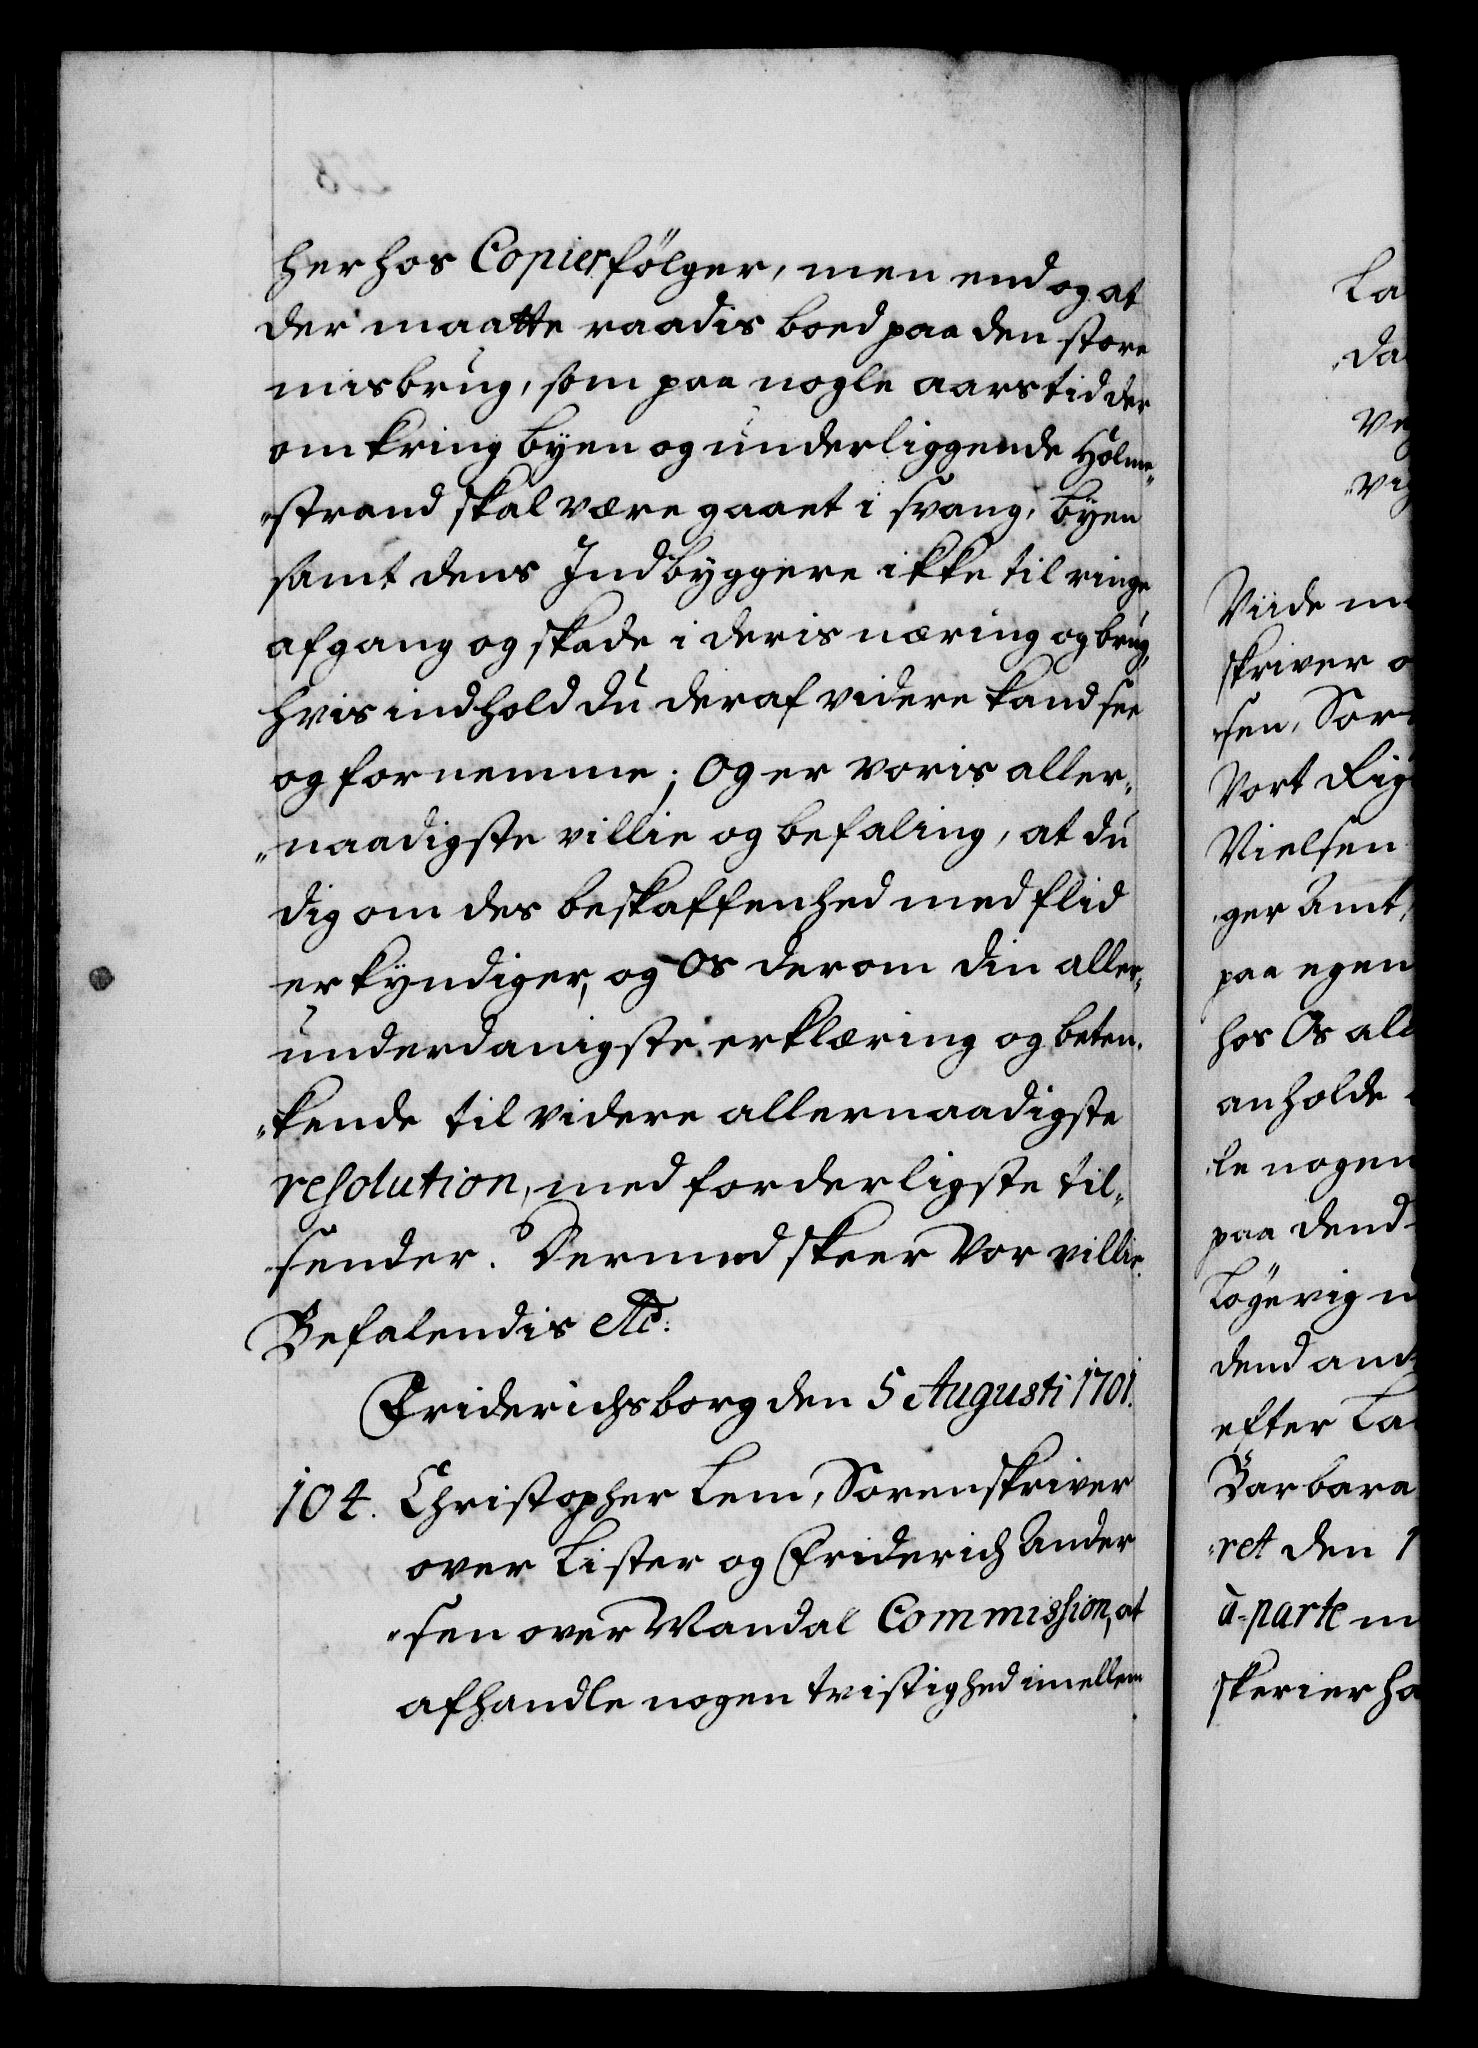 her hos Copier følger, men end og at
der maatte raadis boed paa den store
misbrug, som paa nogle aarstid der
omkring byen og underliggende Holme„
„strand skal være gaaet i svang, byen
samt dens Indbyggere ikke til ringe
afgang og skade i deris næring og brug,
hvis indhold du deraf videre kand see
og fornemme; Og er voris aller„
„naadigste villie og befaling, at du
dig om des beskaffenhed med flid
erkyndiger, og Os derom din aller„
underdanigste erklæring og beten„
„kende til videre allernaadigste
resolution, med forderligste til„
„sender. Dermed skeer Vor villie.
Befalendis etc:
Friderichsborg den 5 Augusti 1701.
104. Christopher Lem, Sorenskriver
over Lister og Friderich Ander
„sen over Mandal Commission, at
afhandle nogen tvistighed imellem
La
da
ve
„vig
Viide m
skriver o
„sen, Sor
Vort Rig
Nielsen
„ger Amt,
paa egen
hos Os all
anholde
„le nogen
paa dend
Løgevig
dend and
efter La
Barbara
„ret den 1
à-parte m
skerier ha